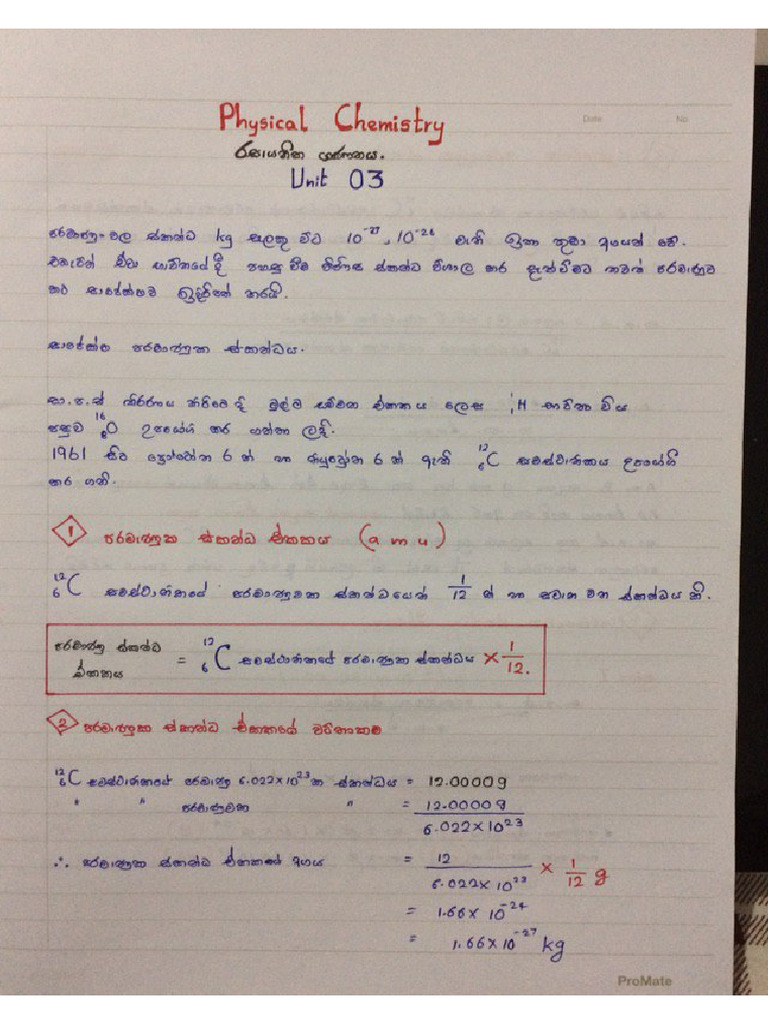 Physical Chemistry
Date No
රසායනික ගණනය.
Unit 03
පරමාණු වල ස්කන්ධ kg සැලකූ විට 10⁻²⁷, 10⁻²⁶ වැනි ඉතා කුඩා අගයන් වේ.
එබැවින් ඒවා භාවිතයේ දී පහසු වීම පිණිස ස්කන්ධ විශාල කර දැක්වීමට තවත් පරමාණුව
කට සාපේක්ෂව ඉදිරිපත් කරයි.
සාපේක්ෂ පරමාණුක ස්කන්ධය.
සා.ප.ස් නිර්ණය කිරීමේ දී මුල්ම සම්මත ඒකකය ලෙස ¹₁H භාවිතා විය.
පසුව ¹⁶₈O උපයෝගී කර ගන්නා ලදී.
1961 සිට ප්‍රෝටෝන 6 ක් හා නියුට්‍රෝන 6 ක් ඇති ¹²₆C සමස්ථානිකය උපයෝගී
කර ගනී.
1 පරමාණුක ස්කන්ධ ඒකකය (a m u)
¹²₆C සමස්ථානිකයේ පරමාණුවක ස්කන්ධයෙන් 1/12 ක් හා සමාන වන ස්කන්ධය කි.
පරමාණු ස්කන්ධ ඒකකය = ¹²₆C සමස්ථානිකයේ පරමාණුක ස්කන්ධය × 1/12.
2 පරමාණුක ස්කන්ධ ඒකකයේ වටිනාකම
¹²₆C සමස්ථානිකයේ පරමාණු 6.022×10²³ ක ස්කන්ධය = 12.0000g
" " පරමාණුවක " = 12.0000g / 6.022×10²³
∴ පරමාණුක ස්කන්ධ ඒකකයේ අගය = 12 / 6.022×10²³ × 1/12 g
= 1.66× 10⁻²⁴
= 1.66×10⁻²⁷ kg
ProMate